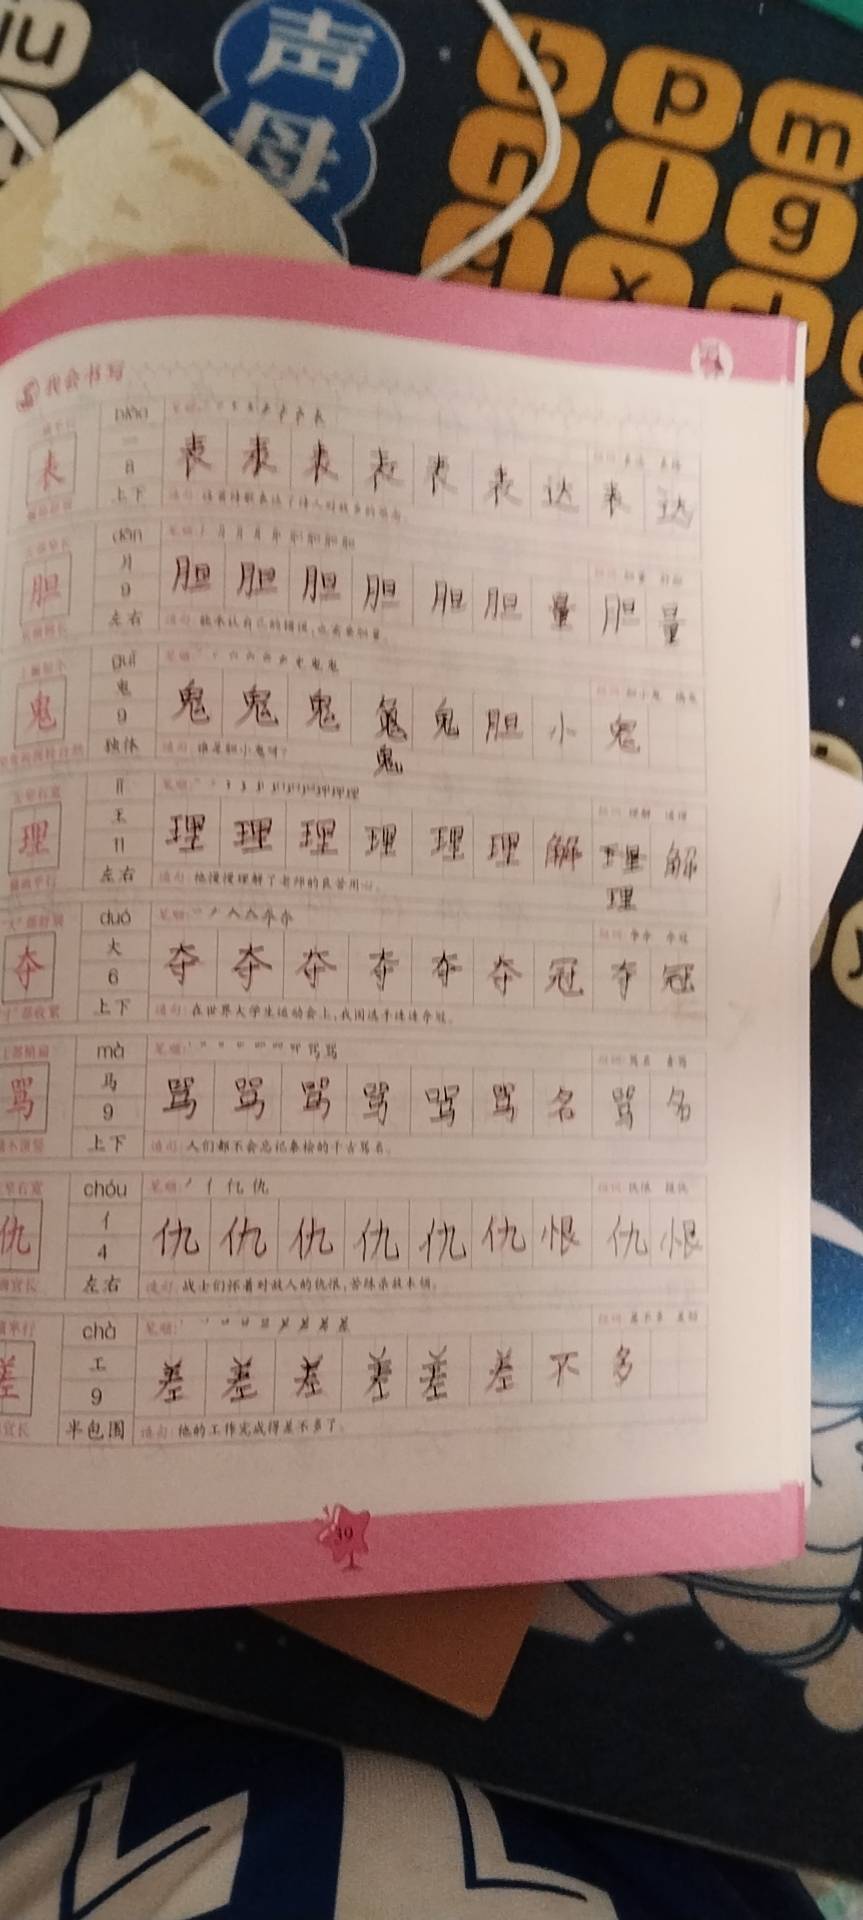 iu
声母
b p m
n l g
q x
我会书写
biǎo
一
8
上下
表
表 表 表 表 表 表 达 表 达
dǎn
月
9
左右
胆
胆 胆 胆 胆 胆 胆 量 胆 量
造句:敢承认自己的错误,也需要胆量。
guǐ
鬼
9
独体
鬼
鬼 鬼 鬼 鬼 鬼 胆 小 鬼
鬼
造句:谁是胆小鬼呀?
lǐ
王
11
左右
理
理 理 理 理 理 理 解 理 解
理
组词:理解 道理
造句:他慢慢理解了老师的良苦用心。
duó
大
6
上下
夺
夺 夺 夺 夺 夺 夺 冠 夺 冠
组词:争夺 夺冠
造句:在世界大学生运动会上,我国选手连连夺冠。
mà
马
9
上下
骂
骂 骂 骂 骂 骂 骂 名 骂 名
造句:人们都不会忘记秦桧的千古骂名。
chóu
亻
4
左右
仇
仇 仇 仇 仇 仇 仇 恨 仇 恨
造句:战士们怀着对敌人的仇恨,苦练杀敌本领。
chà
工
9
半包围
差
差 差 差 差 差 差 不 多
造句:他的工作完成得差不多了。
49